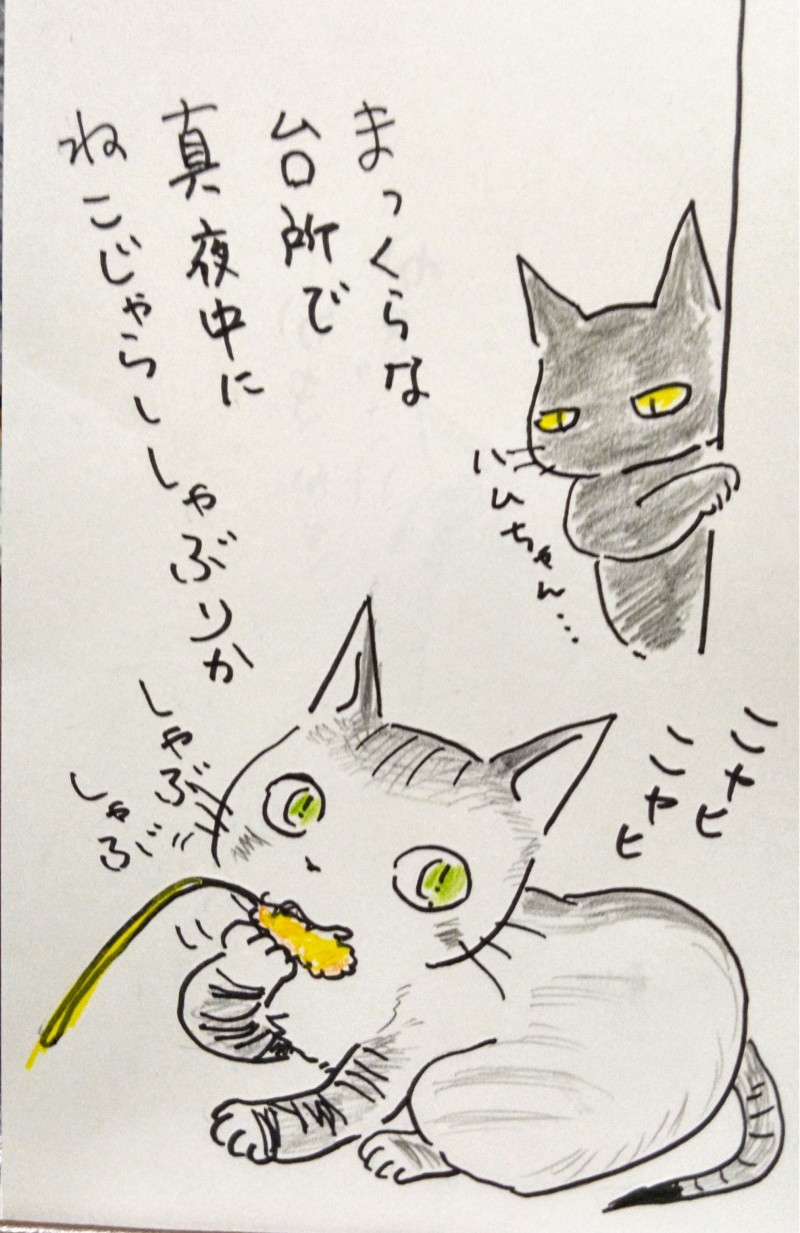 まっくらな
台所で
真夜中に
ねこじゃらししゃぶりか
ハムちゃん…
しゃぶ
しゃぶ